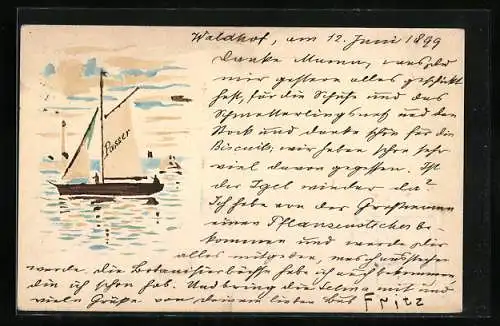 Waldhof, am 12. Juni 1899
Danke Mama, was du
mir gestern alles geschickt
hast, für die Schuhe und das
Schmetterlingsnetz und den
Stock und danke schön für die
Biscuits; wir haben schon sehr
viel davon gegessen. Ist
der Igel wieder da?
Ich habe von der Grossmama
einen Pflanzenstecher be-
kommen und werde dir
alles mitgeben, was ich
werde, die Botanisierbüchse habe ich auch bekommen
die ich schon hab. Und bring die Selma mit und
viele Grüße von deinem lieben Fritz
Passer